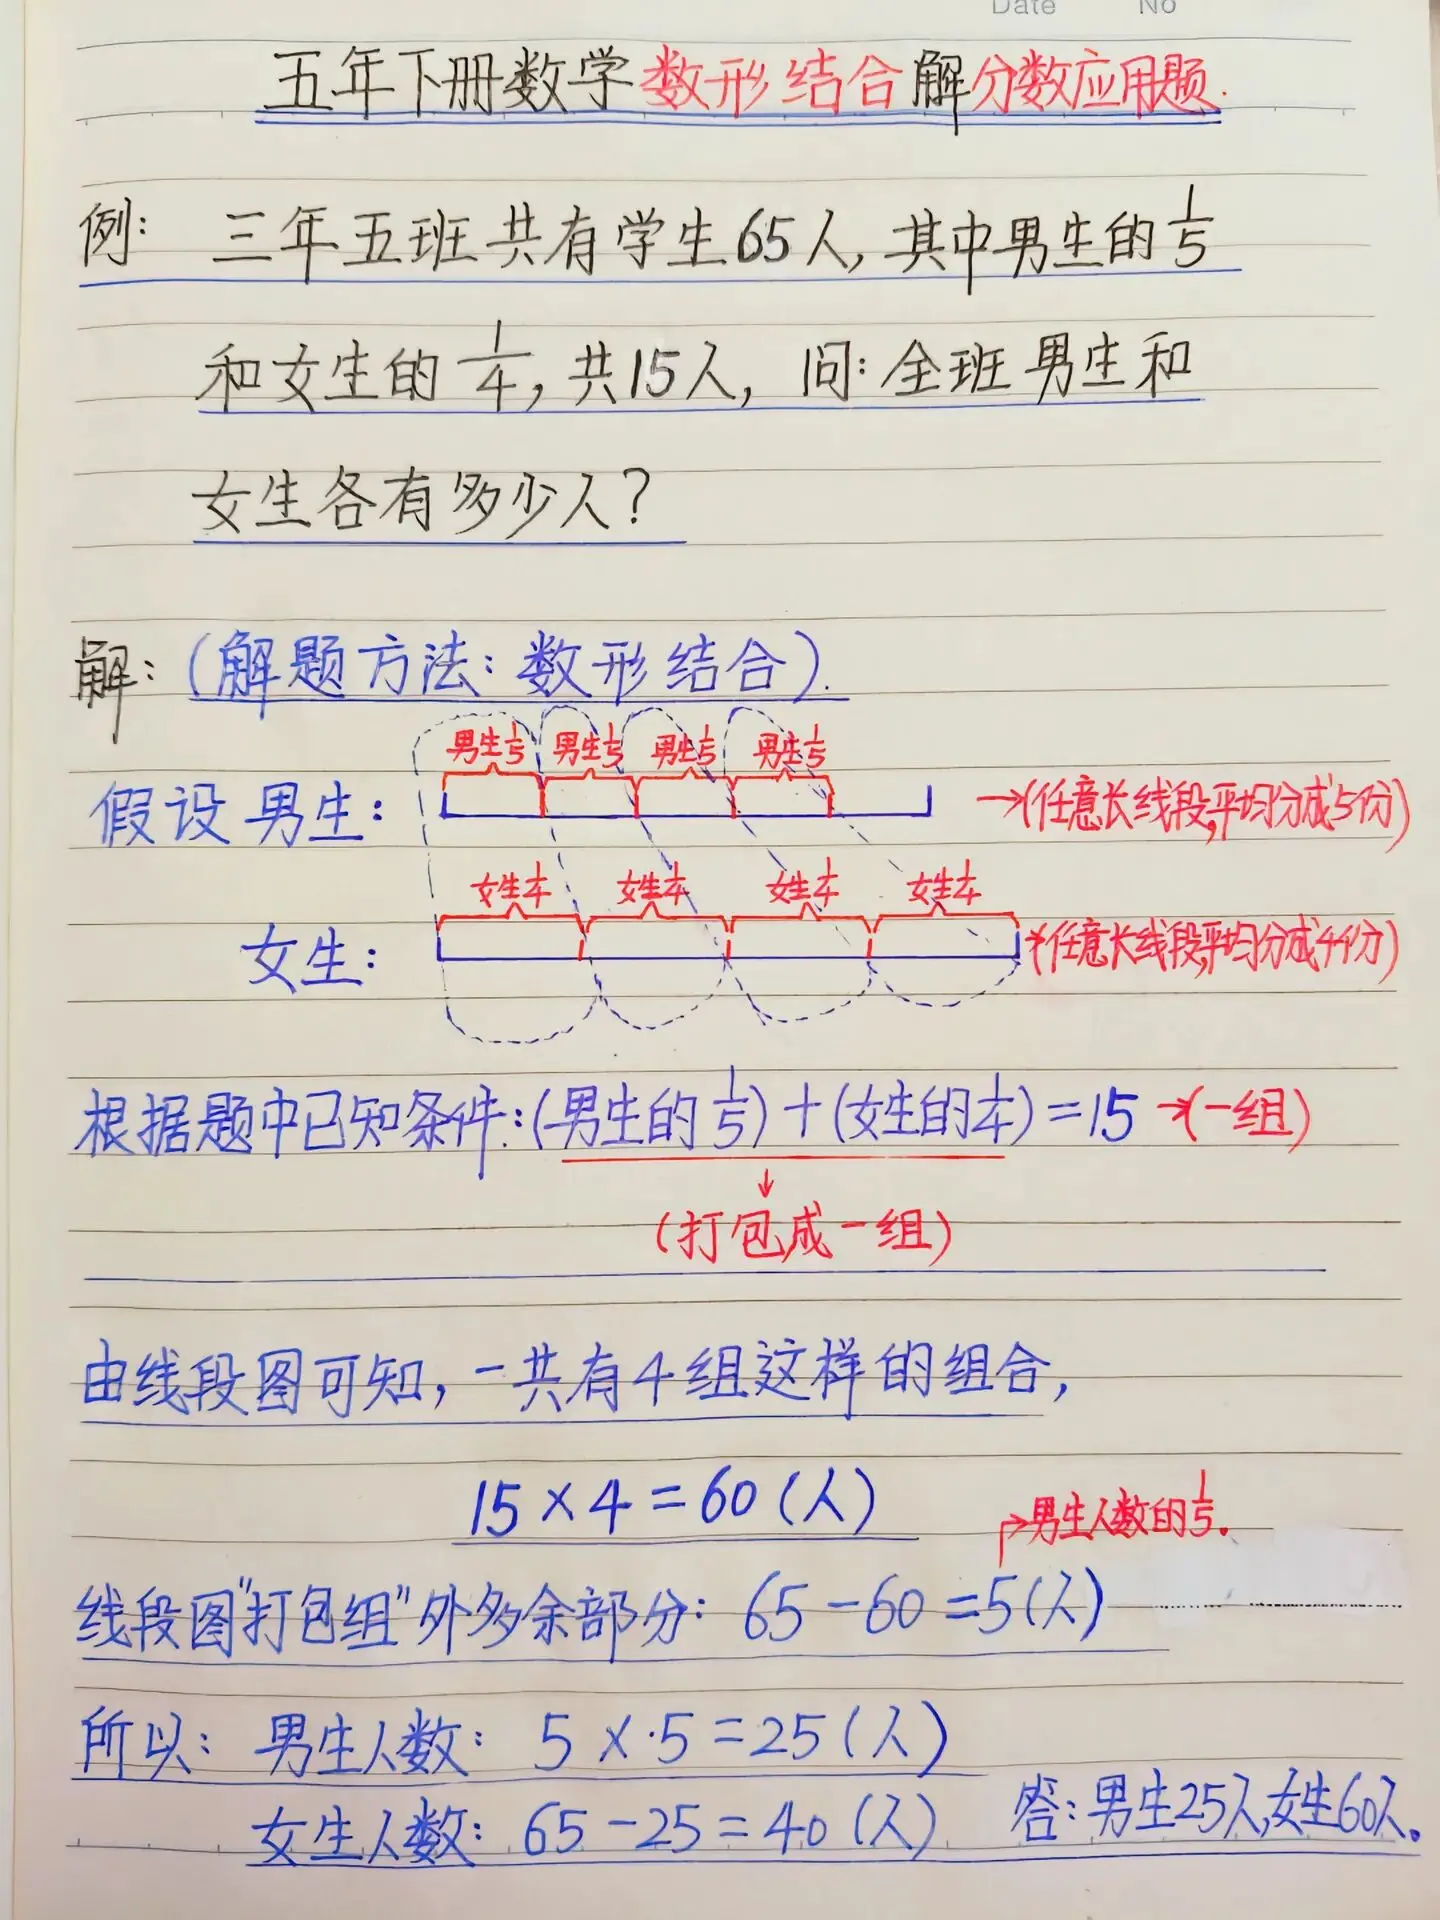 Date No
五年下册数学数形结合解分数应用题.
例: 三年五班共有学生65人,其中男生的1/5
和女生的1/4,共15人, 问:全班男生和
女生各有多少人?
解:(解题方法:数形结合).
男生1/5 男生1/5 男生1/5 男生1/5
假设男生: →(任意长线段,平均分成5份)
女生1/4 女生1/4 女生1/4 女生1/4
女生: →(任意长线段,平均分成4份)
根据题中已知条件:(男生的1/5)+(女生的1/4)=15→(一组)
↓
(打包成一组)
由线段图可知,一共有4组这样的组合,
15×4=60(人)
→男生人数的1/5.
线段图"打包组"外多余部分: 65-60=5(人)
所以: 男生人数: 5×·5=25(人)
女生人数: 65-25=40(人) 答:男生25人,女生60人.